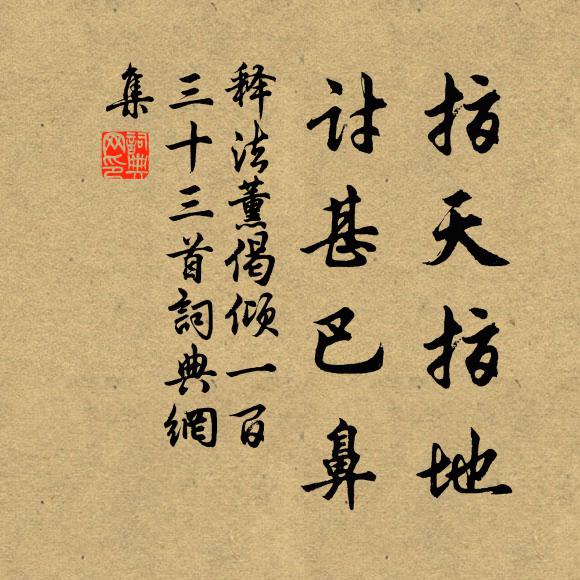 指天指地
討甚巴鼻
释法薰偈倾一百
三十三首詞典網
集
詞典网印